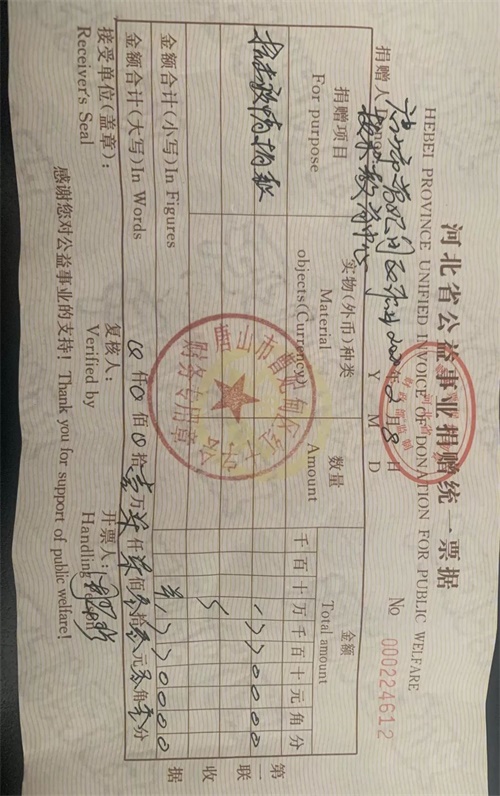 河北省公益事业捐赠统一票据
HEBEI PROVINCE UNIFIED INVOICE OF DONATION FOR PUBLIC WELFARE
捐赠人Donor 2020年2月8日 No 000224612
技术教育中心 Y M D
捐赠项目 实物(外币)种类 数量 金额
For purpose Material objects(Currency) Amount Total amount
千百十万千百十元角分
抗击疫情捐款 1770000
金额合计(小写)In Figures ¥1770000
金额合计(大写)In Words 仟 佰 拾壹万柒仟柒佰零拾零元零角零分
接受单位(盖章): 复核人: 开票人:
Receiver's Seal Verified by Handling Person
感谢您对公益事业的支持! Thank you for support of public welfare!
第一联 收据
唐山市曹妃甸区红十字会
财务专用章